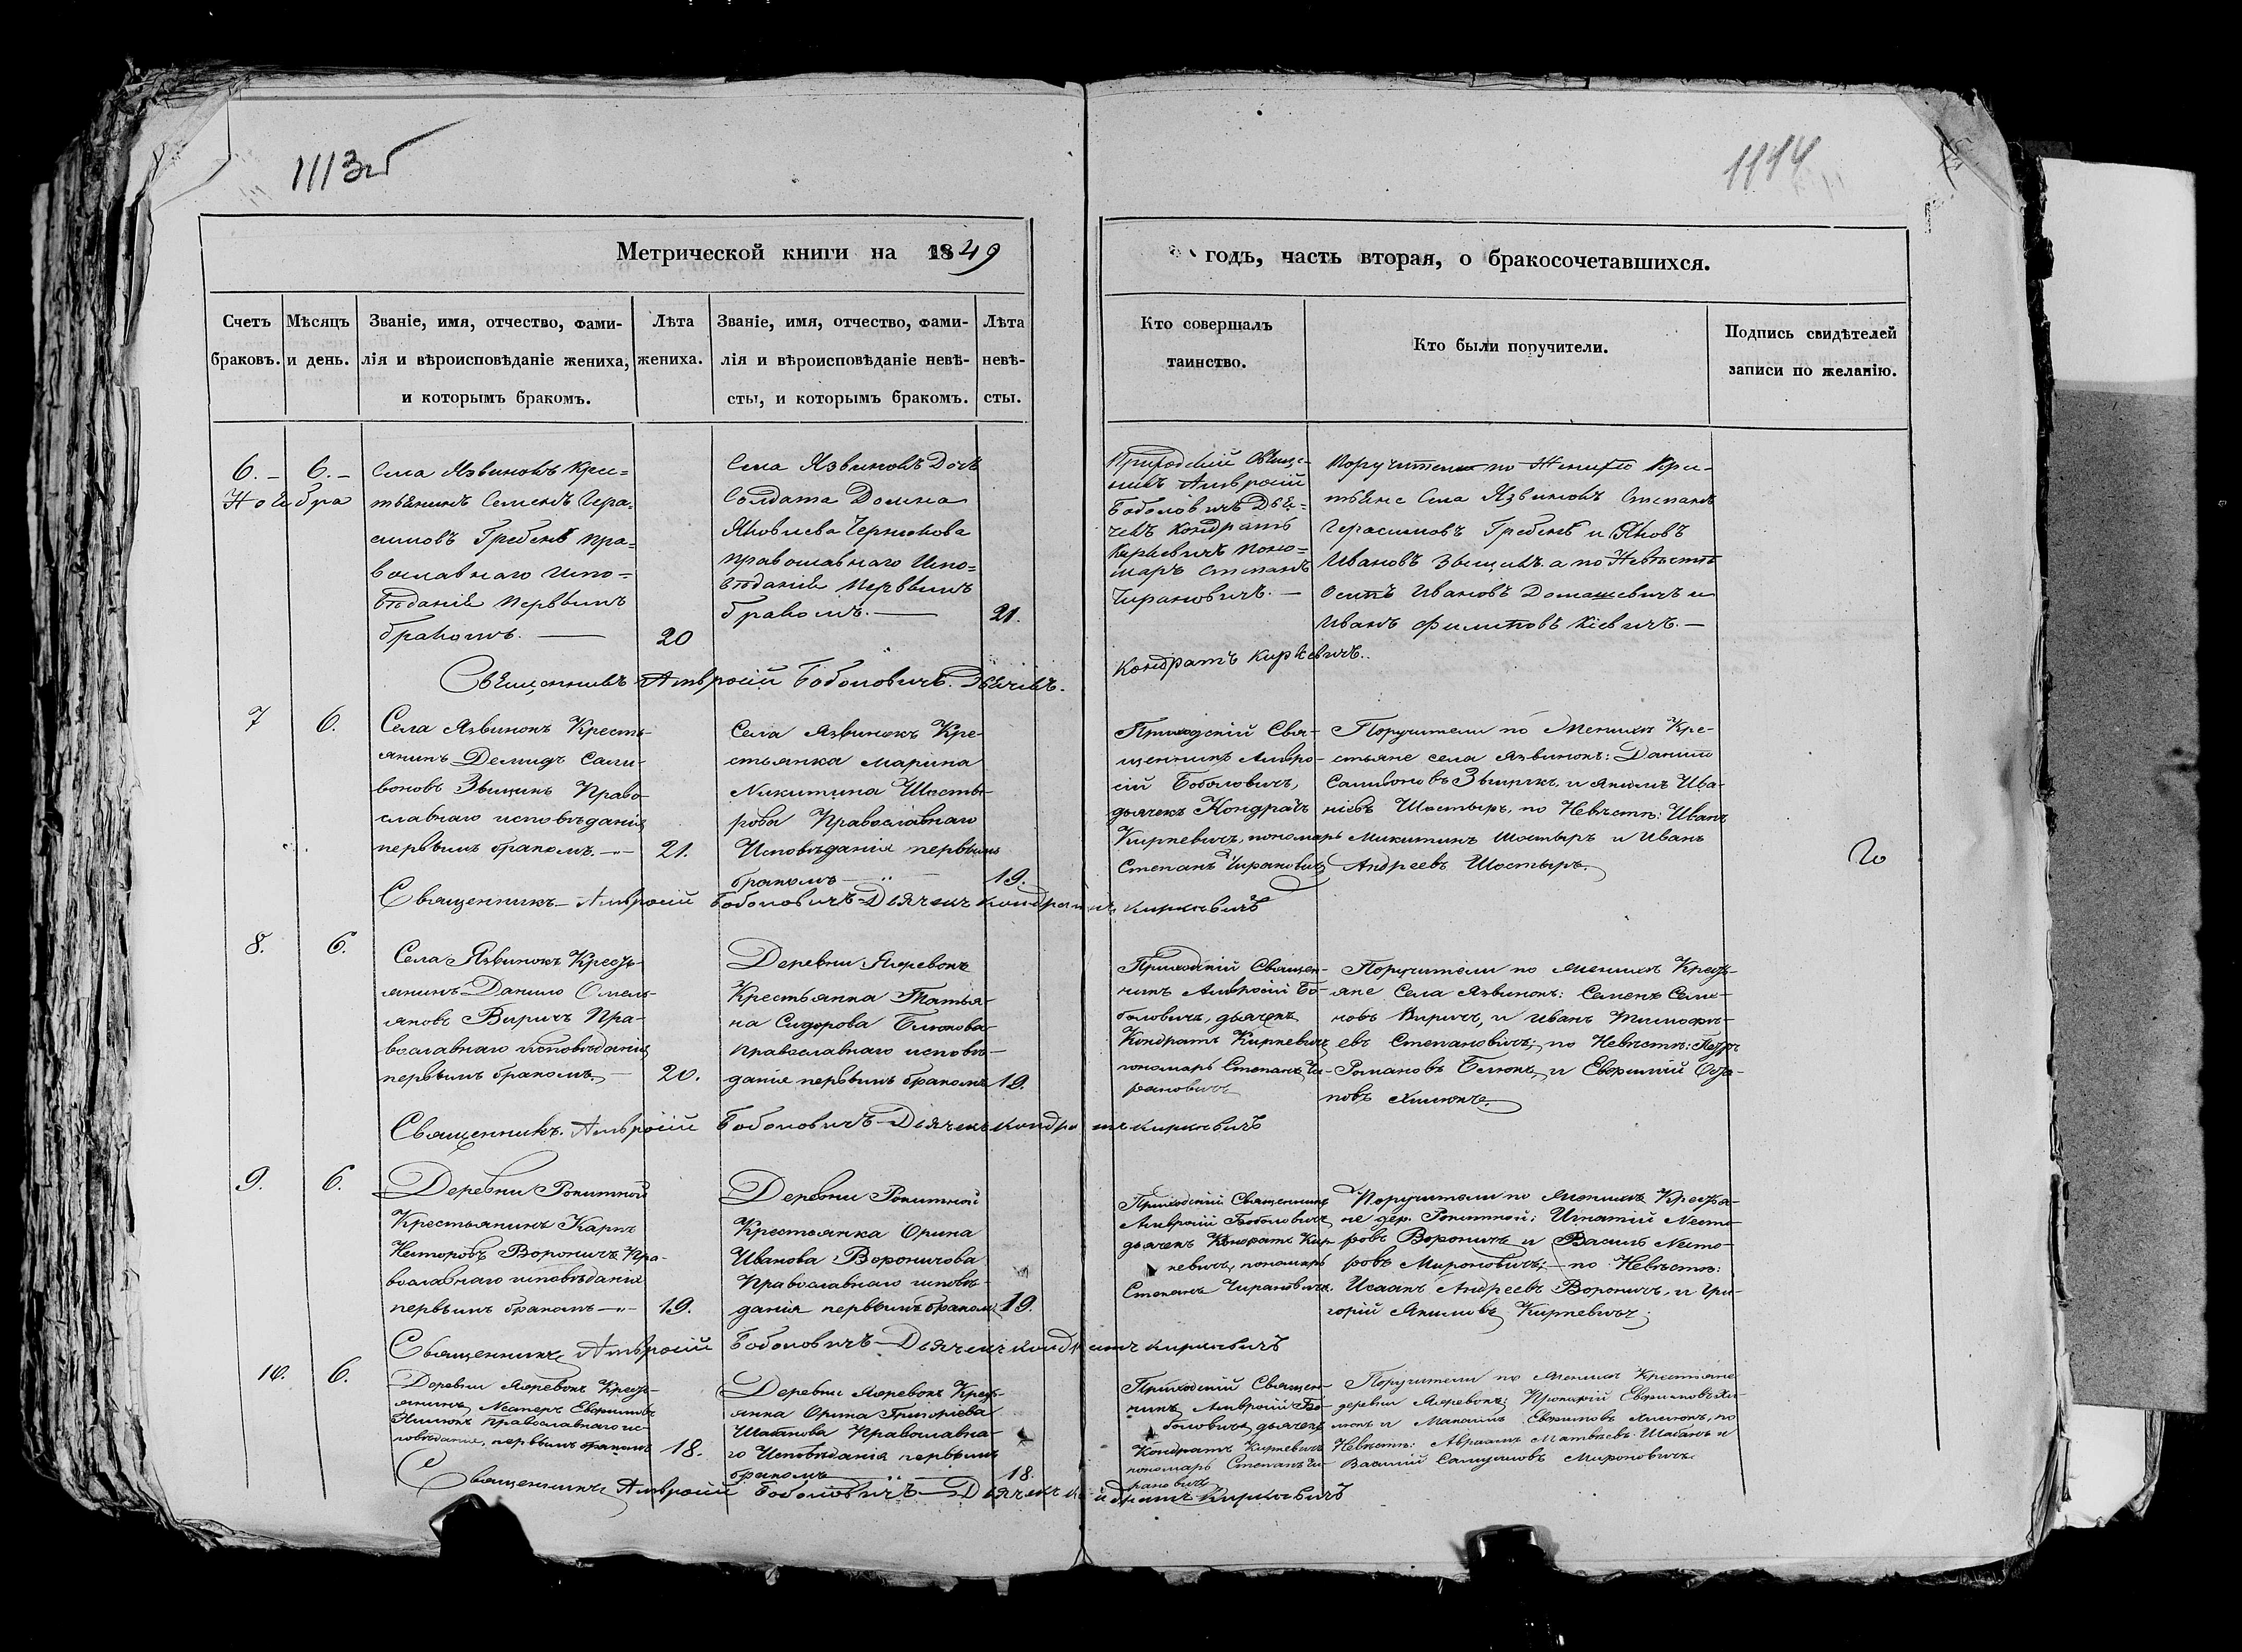 1113 об
1114
Метрической книги на 1849
годъ, часть вторая, о бракосочетавшихся.
Счетъ браковъ.
Мѣсяцъ и день.
Званіе, имя, отчество, фами-
лія и вѣроисповѣданіе жениха,
и которымъ бракомъ.
Лѣта
жениха.
Званіе, имя, отчество, фами-
лія и вѣроисповѣданіе невѣ-
сты, и которымъ бракомъ.
Лѣта
невѣ-
сты.
Кто совершалъ
таинство.
Кто были поручители.
Подпись свидѣтелей
записи по желанію.
6.
6.
Ноября
Села Язвинокъ Кре-
тьянинъ Семенъ Гера-
симовъ Гребень пра-
вославнаго испо-
вѣданія первымъ
бракомъ.
20
Села Язвинокъ Дочь
Солдата Домна
Яковлева
православнаго испо-
вѣданія первымъ
бракомъ.
21.
Приходскій Свяще-
никъ Амвросій
Боболовичъ Дья-
чекъ Кондратъ
Киркевичъ поно-
марь Степанъ
Чирановичъ.
Поручители по Женихѣ Кре-
тьяне Села Язвинокъ Степанъ
Герасимовъ Гребень и Яковъ
Ивановъ Звищикъ. а по Невѣстѣ
Осипъ Ивановъ Домашевичъ и
Иванъ Филиповъ Кіевичъ.
Священникъ Амвросій Боболовичъ. Дьячекъ.
Кондратъ Киркевичъ.
7
6.
Села Язвинокъ Кресть-
янинъ Демидъ Сали-
воновъ Звищикъ Право-
славнаго исповѣданія
первымъ бракомъ.
21.
Села Язвинокъ Кре-
стьянка Марина
Никитина Шосты-
рова Православнаго
Исповѣданія первымъ
бракомъ
19.
Приходскій Свя-
щенникъ Амвро-
сій Боболовичъ,
дьячекъ Кондратъ
Киркевичъ, пономарь
Степанъ Чирановичъ
Поручители по Женихѣ Кре-
стьяне села Язвинокъ: Данило
Саливоновъ Звищикъ, и Якимъ Ива-
ніевъ Шостыръ, по Невѣстѣ: Иванъ
Микитинъ Шостыръ и Иванъ
Андреевъ Шостыръ.
20
Священникъ Амвросій Боболовичъ Дьячекъ Кондратъ Киркевичъ
8.
6.
Села Язвинокъ Кресть-
янинъ Данило Омель-
яновъ Виричъ Пра-
вославнаго исповѣданія
первымъ бракомъ.
20.
Деревни Яжревокъ
Крестьянка Татья-
на Сидорова Блюкова
православнаго исповѣ-
данія первымъ бракомъ
19.
Приходскій Священ-
никъ Амвросій Бо-
боловичъ, дьячекъ
Кондратъ Киркевичъ
пономарь Степанъ Чи-
рановичъ
Поручители по женихѣ Кресть-
яне Села Язвинокъ: Семенъ Семе-
новъ Виричъ, и Иванъ Тимофѣ-
евъ Степановичъ; по Невѣстѣ: Петръ
Романовъ Блюкъ, и Евфимій
Химокъ.
Священникъ. Амвросій Боболовичъ Дьячекъ Кондратъ Киркевичъ
9.
6.
Деревни Рокитной
Крестьянинъ Карпъ
Несторовъ Вороничъ Пра-
вославнаго исповѣданія
первымъ бракомъ
19.
Деревни Рокитной
Крестьянка Орина
Иванова Вороничова
Православнаго исповѣ-
данія первымъ бракомъ
19.
Приходскій Священникъ
Амвросій Боболовичъ
дьячекъ Кондратъ Кир-
кевичъ, пономарь
Степанъ Чирановичъ.
Поручители по Женихѣ Крестья-
не дер. Рокитной: Игнатій Несто-
ровъ Вороничъ и Василь Несто-
ровъ Мироновичъ; по Невѣстѣ:
Исаакъ Андреевъ Вороничъ, и Гри-
горій Якимовъ Киркевичъ;
Священникъ Амвросій Боболовичъ Дьячекъ Кондратъ Киркевичъ
10.
6.
Деревни Яжревокъ Кресть-
янинъ Несторъ Евфимовъ
Химокъ православнаго ис-
повѣданія, первымъ бракомъ
18.
Деревни Яжревокъ Кресть-
янка Орина Григоріева
Шабанова Православна-
го Исповѣданія первымъ
бракомъ
18.
Приходскій Священ-
никъ Амвросій Бо-
боловичъ дьячекъ
Кондратъ Киркевичъ
пономарь Степанъ Чи-
рановичъ
Поручители по Женихѣ Крестьяне
деревни Яжревокъ: Прокопій Евфимовъ Хи-
мокъ и Максимъ Евфимовъ Химокъ, по
Невѣстѣ: Авраамъ Матвѣевъ Шабанъ и
Василій Самуиловъ Мироновичъ
Священникъ Амвросій Боболовичъ Дьячекъ Кондратъ Киркевичъ